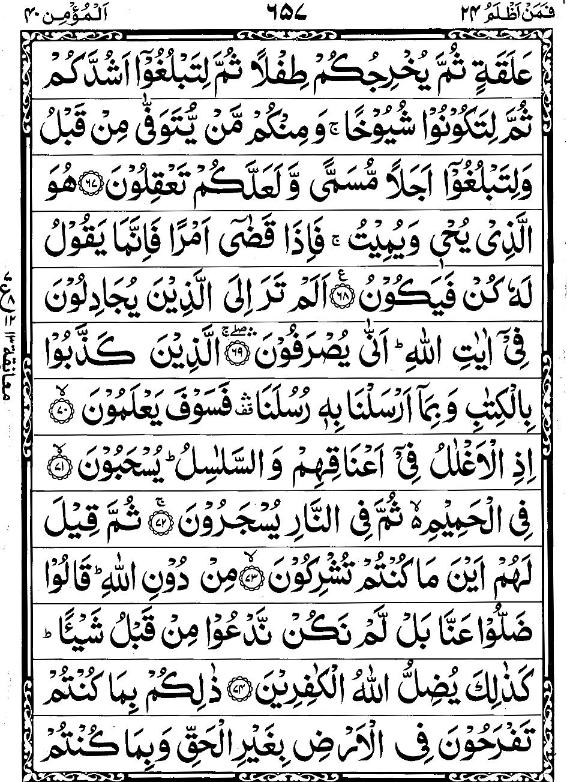 فمن اظلم ۲۴ ٦٥٧ المؤمن ۴۰
عَلَقَةٍ ثُمَّ يُخْرِجُكُمْ طِفْلًا ثُمَّ لِتَبْلُغُوْٓا اَشُدَّكُمْ
ثُمَّ لِتَكُوْنُوْا شُيُوْخًا ۚ وَمِنْكُمْ مَّنْ يُّتَوَفّٰى مِنْ قَبْلُ
وَلِتَبْلُغُوْٓا اَجَلًا مُّسَمًّى وَّلَعَلَّكُمْ تَعْقِلُوْنَ ۶۷ هُوَ
الَّذِيْ يُحْيٖ وَيُمِيْتُ ۚ فَاِذَا قَضٰٓى اَمْرًا فَاِنَّمَا يَقُوْلُ
لَهٗ كُنْ فَيَكُوْنُ ۶۸ اَلَمْ تَرَ اِلَى الَّذِيْنَ يُجَادِلُوْنَ
فِيْٓ اٰيٰتِ اللّٰهِ ؕ اَنّٰى يُصْرَفُوْنَ ۶۹ الَّذِيْنَ كَذَّبُوْا
بِالْكِتٰبِ وَبِمَآ اَرْسَلْنَا بِهٖ رُسُلَنَا ۛ فَسَوْفَ يَعْلَمُوْنَ ۷۰
اِذِ الْاَغْلٰلُ فِيْٓ اَعْنَاقِهِمْ وَالسَّلٰسِلُ ؕ يُسْحَبُوْنَ ۷۱
فِي الْحَمِيْمِ ۙ ثُمَّ فِي النَّارِ يُسْجَرُوْنَ ۷۲ ثُمَّ قِيْلَ
لَهُمْ اَيْنَ مَا كُنْتُمْ تُشْرِكُوْنَ ۷۳ مِنْ دُوْنِ اللّٰهِ ؕ قَالُوْا
ضَلُّوْا عَنَّا بَلْ لَّمْ نَكُنْ نَّدْعُوْا مِنْ قَبْلُ شَيْـًٔا ؕ
كَذٰلِكَ يُضِلُّ اللّٰهُ الْكٰفِرِيْنَ ۷۴ ذٰلِكُمْ بِمَا كُنْتُمْ
تَفْرَحُوْنَ فِي الْاَرْضِ بِغَيْرِ الْحَقِّ وَبِمَا كُنْتُمْ
معانقة ۱۳